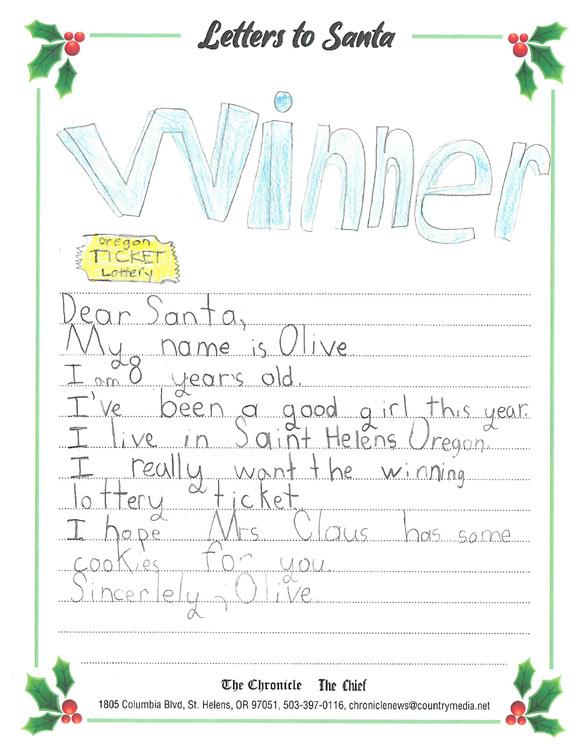 Letters to Santa
Winner
Oregon
TICKET
Lottery
Dear Santa,
My name is Olive.
I am 8 years old.
I've been a good girl this year.
I live in Saint Helens Oregon.
I really want the winning
lottery ticket.
I hope Mrs Claus has some
cookies for you.
Sincerlely, Olive.
The Chronicle The Chief
1805 Columbia Blvd, St. Helens, OR 97051, 503-397-0116, chroniclenews@countrymedia.net